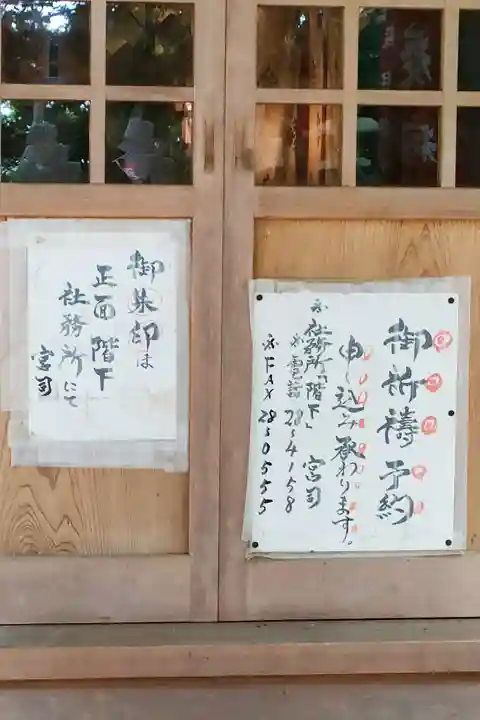 御祈祷予約
申し込み承わります。
※社務所「階下」 宮司
※電話 28-4158
※FAX 28-0555
御朱印は
正面階下
社務所にて
宮司